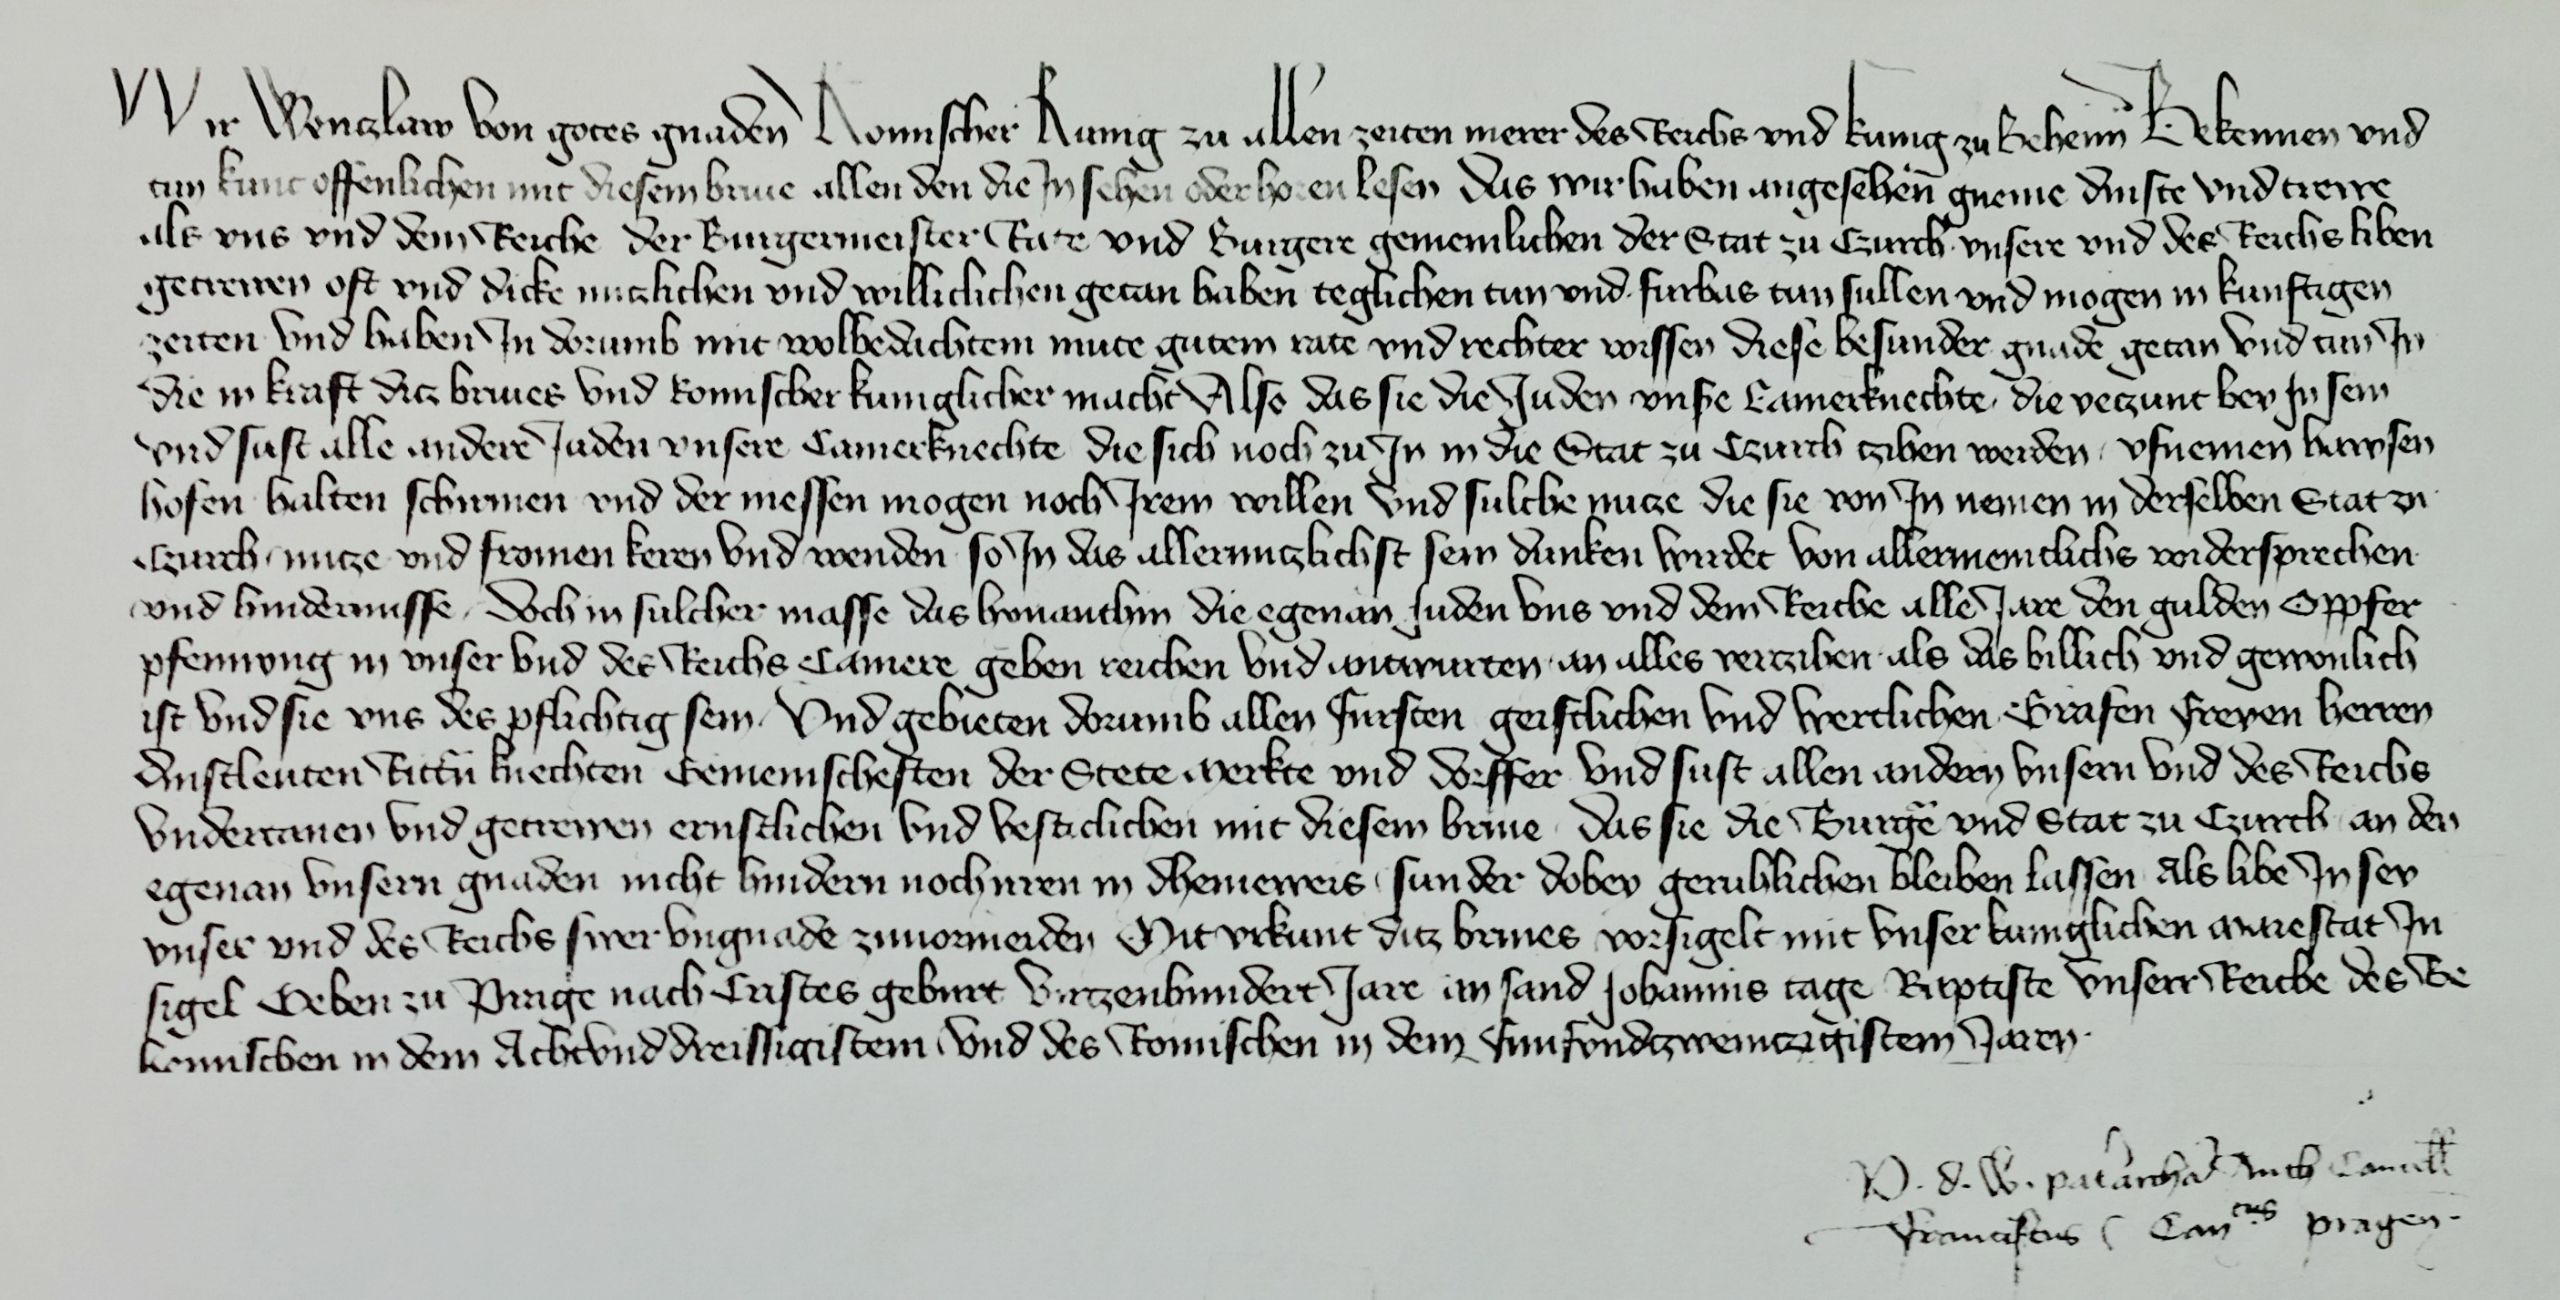 Wir Wenczlaw von gotes gnaden Romischer Kunig zu allen zeiten merer des Reichs vnd kunig zu Behem Bekennen vnd
tun kunt offenlichen mit diesem briue allen den die In sehen oder horen lesen Das wir haben angesehen gneme dinste vnd trewe
als vns vnd dem Reiche der Burgermeister Rate vnd Burgere gemeinlichen der Stat zu Czurch vnsere vnd des Reichs liben
getrewen oft vnd dicke nutzlichen vnd williclichen getan haben teglichen tun vnd furbas tun sullen vnd mogen in kunftigen
zeiten vnd haben In dorumb mit wolbedachtem mute gutem rate vnd rechter wissen diese besunder gnade getan vnd tun In
die in kraft ditz briues vnd Romischer kuniglicher macht Also das sie die Juden vnsre Camerknechte die yetzunt bey In sein
vnd sust alle andere Juden vnsere Camerknechte die sich noch zu In in die Stat zu Czurch czihen werden vfnemen hawsen
hofen halten schirmen vnd der niessen mogen noch Irem willen vnd sulche nutze die sie von In nemen in derselben Stat zu
Czurch nutze vnd fromen keren vnd wenden so In das allernutzlichst sein dunken wirdet von allermeniclichs widersprechen
vnd hindernusse Doch in sulcher masse das hinanthin die egenan Juden vns vnd dem Reiche alle Jare den gulden Oppfer
pfennyng in vnser vnd des Reichs Camere geben reichen vnd antwurten an alles verczihen als das billich vnd gewonlich
ist vnd sie vns des pflichtig sein Vnd gebieten dorumb allen fursten geistlichen vnd werltlichen Grafen freyen herren
dinstleuten Rittern knechten Gemeinscheften der Stete Merkte vnd dorffer vnd sust allen andern vnsern vnd des Reichs
vndertanen vnd getrewen ernstlichen vnd vesticlichen mit diesem briue Das sie die Burger vnd Stat zu Czurch an den
egenan vnsern gnaden nicht hindern noch irren in dheineweis sunder dobey geruhlichen bleiben lassen Als libe In sey
vnser vnd des Reichs swer vngnade zuuormeiden Mit vrkunt ditz briues vorsigelt mit vnser kuniglichen Maiestat In
sigel Geben zu Prage nach Cristes geburt virtzenhundert Jare an sand Johannis tage Baptiste vnserr Reiche des Be
hemischen in dem Achtvnddreissigistem vnd des Romischen in dem funfvndczwenczigistem Jaren
P. d. W. patriarcha Anth Cancell
Franciscus Can^cus pragen